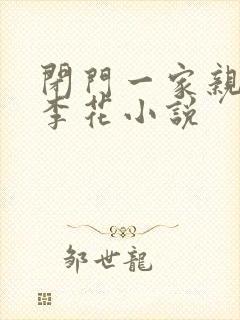 閉門一家親
李花小説
邹世龍